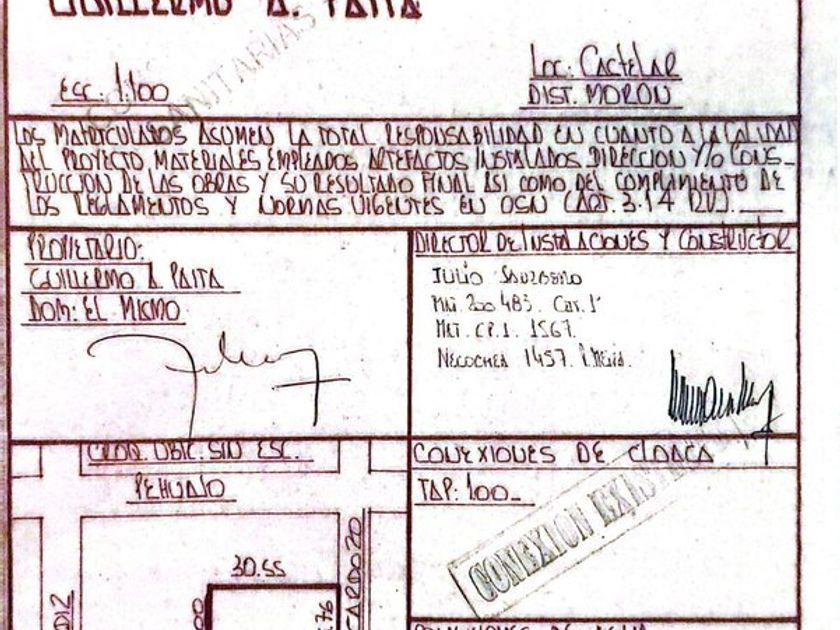 GUILLERMO A. PAITA
SANITARIAS
ESC: 1:100
LOC: CASTELAR
DIST. MORON
LOS MATRICULADOS ASUMEN LA TOTAL RESPONSABILIDAD EN CUANTO A LA CALIDAD
DEL PROYECTO MATERIALES EMPLEADOS ARTEFACTOS INSTALADOS DIRECCION Y/O CONS_
TRUCCION DE LAS OBRAS Y SU RESULTADO FINAL ASI COMO DEL COMPLIMIENTO DE
LOS REGLAMENTOS Y NORMAS VIGENTES EN OSN (ART. 3.1.4 RV).
PROPIETARIO:
GUILLERMO A. PAITA
DOM: EL MISMO
DIRECTOR DE INSTALACIONES Y CONSTRUCTOR
JULIO
MAT. 200 483. CAT. 1°
MAT. C.P.I. 1567.
NECOCHEA 1457.
CROQ. UBIC. SIN ESC.
PEHUAJO
30.55
CARDOZO
CONEXIONES DE CLOACA
TAP: 100_
CONEXION EXISTENTE